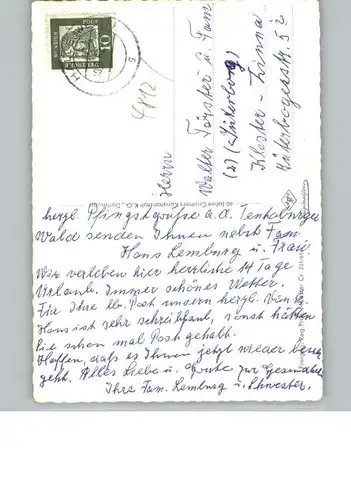 10
4812
Herrn
Walter Förster u. Fam.
(2) (Jüterbog)
Kloster-Zinna
Jüterbogerstr. 52
60 Jahre Cramers Kunstanstalt K.G., Dortmund
herzl. Pfingstgrüße a. d. Teutoburger
Wald senden Ihnen nebst Fam
Hans Lemburg u. Frau.
Wir verleben hier herrliche 14 Tage
Urlaub. Immer schönes Wetter.
Für Ihre lb. Post unsern herzl. Dank.
Hans ist sehr schreibfaul, sonst hätten
Sie schon mal Post gehabt.
Hoffen, daß es Ihnen jetzt wieder besser
geht. Alles Liebe u. Gute zur Gesundheit
Ihre Fam. Lemburg u. Schwester.